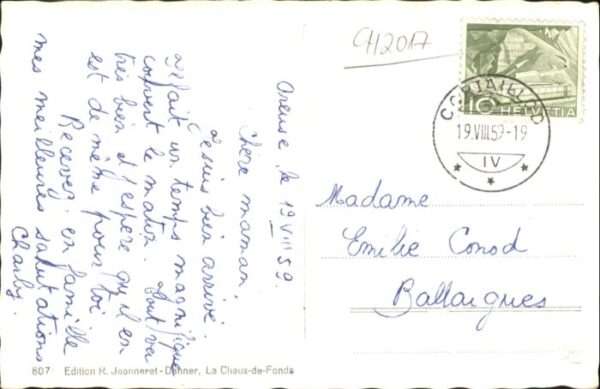 Areuse, le 19 VIII 59.
Chère maman,
Je suis bien arrivé.
Il fait un temps magnifique
couvert le matin. Tout va
très bien et j'espère qu'il en
est de même pour toi
Recevez en famille
mes meilleures salutations
Charly.
CH2017
10 HELVETIA
CORTAILLOD
19.VIII.59-19
IV
Madame
Emilie Conod
Ballaigues
807 Edition R. Jeanneret-Dahner, La Chaux-de-Fonds